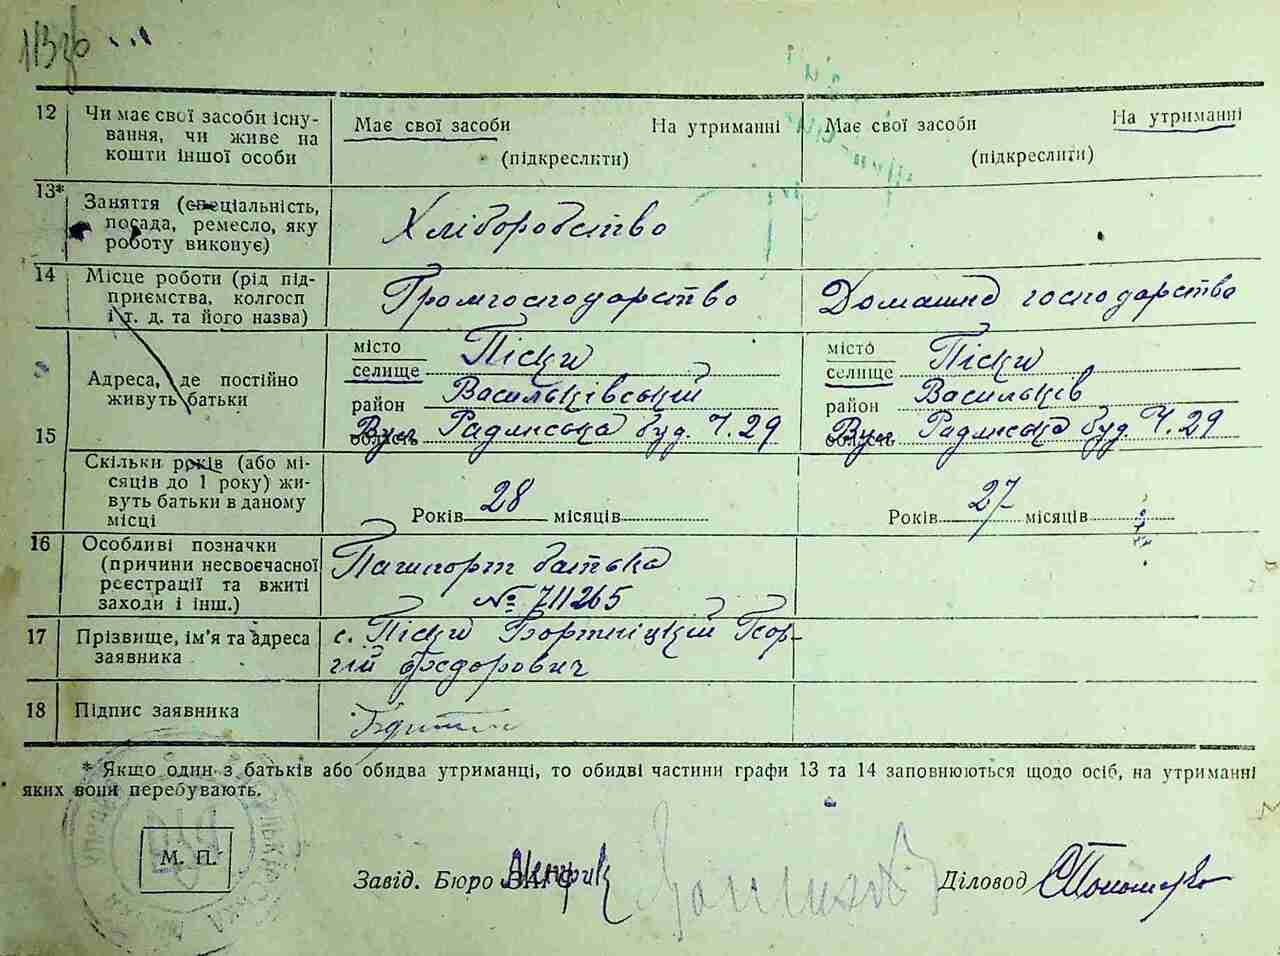 12 Чи має свої засоби існу-
вання, чи живе на
кошти іншої особи
Має свої засоби На утриманні
(підкреслити)
Має свої засоби На утриманні
(підкреслити)
13* Заняття (спеціальність,
посада, ремесло, яку
роботу виконує)
Хліборобство
14 Місце роботи (рід під-
приємства, колгосп
і т. д. та його назва)
Громгосподарство
Домашнє господарство
15 Адреса, де постійно
живуть батьки
місто Піски
селище
район Васильківський
Вул Радянська буд. Ч. 29
місто Піски
селище
район Васильків
Вул Радянська буд. Ч. 29
Скільки років (або мі-
сяців до 1 року) жи-
вуть батьки в даному
місці
Років 28 місяців
Років 27 місяців
16 Особливі позначки
(причини несвоєчасної
реєстрації та вжиті
заходи і інш.)
Пашпорт батька
№ 711265
17 Прізвище, ім'я та адреса
заявника
с. Піски Бортніцкій Геор-
гій Федорович
18 Підпис заявника
* Якщо один з батьків або обидва утриманці, то обидві частини графи 13 та 14 заповнюються щодо осіб, на утриманні
яких вони перебувають.
М. П.
Завід. Бюро ЗАГС
Діловод